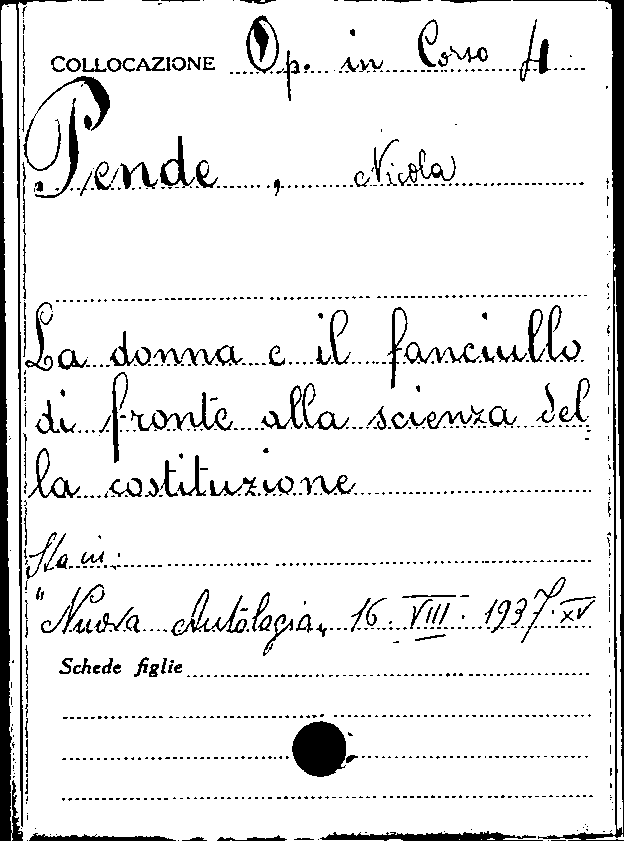 COLLOCAZIONE Op. in Corso 4
Pende, Nicola
La donna e il fanciullo
di fronte alla scienza del
la costituzione
Sta in:
"Nuova Antologia„ 16. VIII. 1937. XV
Schede figlie